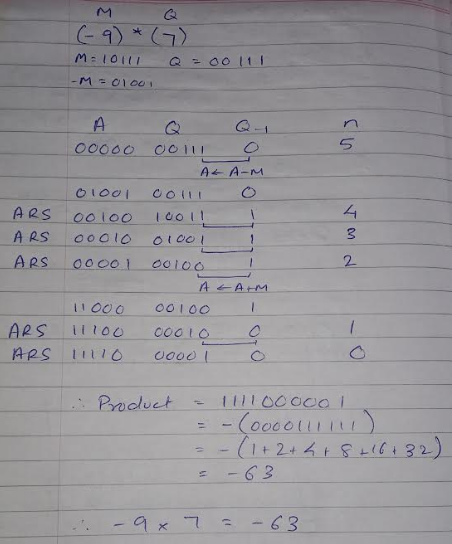 M Q
(-9) * (7)
M=10111 Q = 00111
-M = 01001
A Q Q-1 n
00000 00111 0 5
A← A-M
01001 00111 0
ARS 00100 10011 1 4
ARS 00010 01001 1 3
ARS 00001 00100 1 2
A ← A+M
11000 00100 1
ARS 11100 00010 0 1
ARS 11110 00001 0 0
∴ Product = 1111000001
= -(0000111111)
= -(1+2+4+8+16+32)
= -63
∴ -9 x 7 = -63